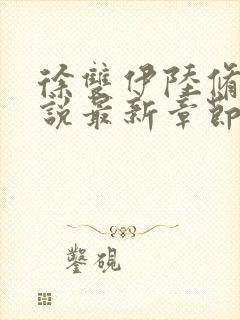 徐雙伊陸脩
說最新章節
鑿硯